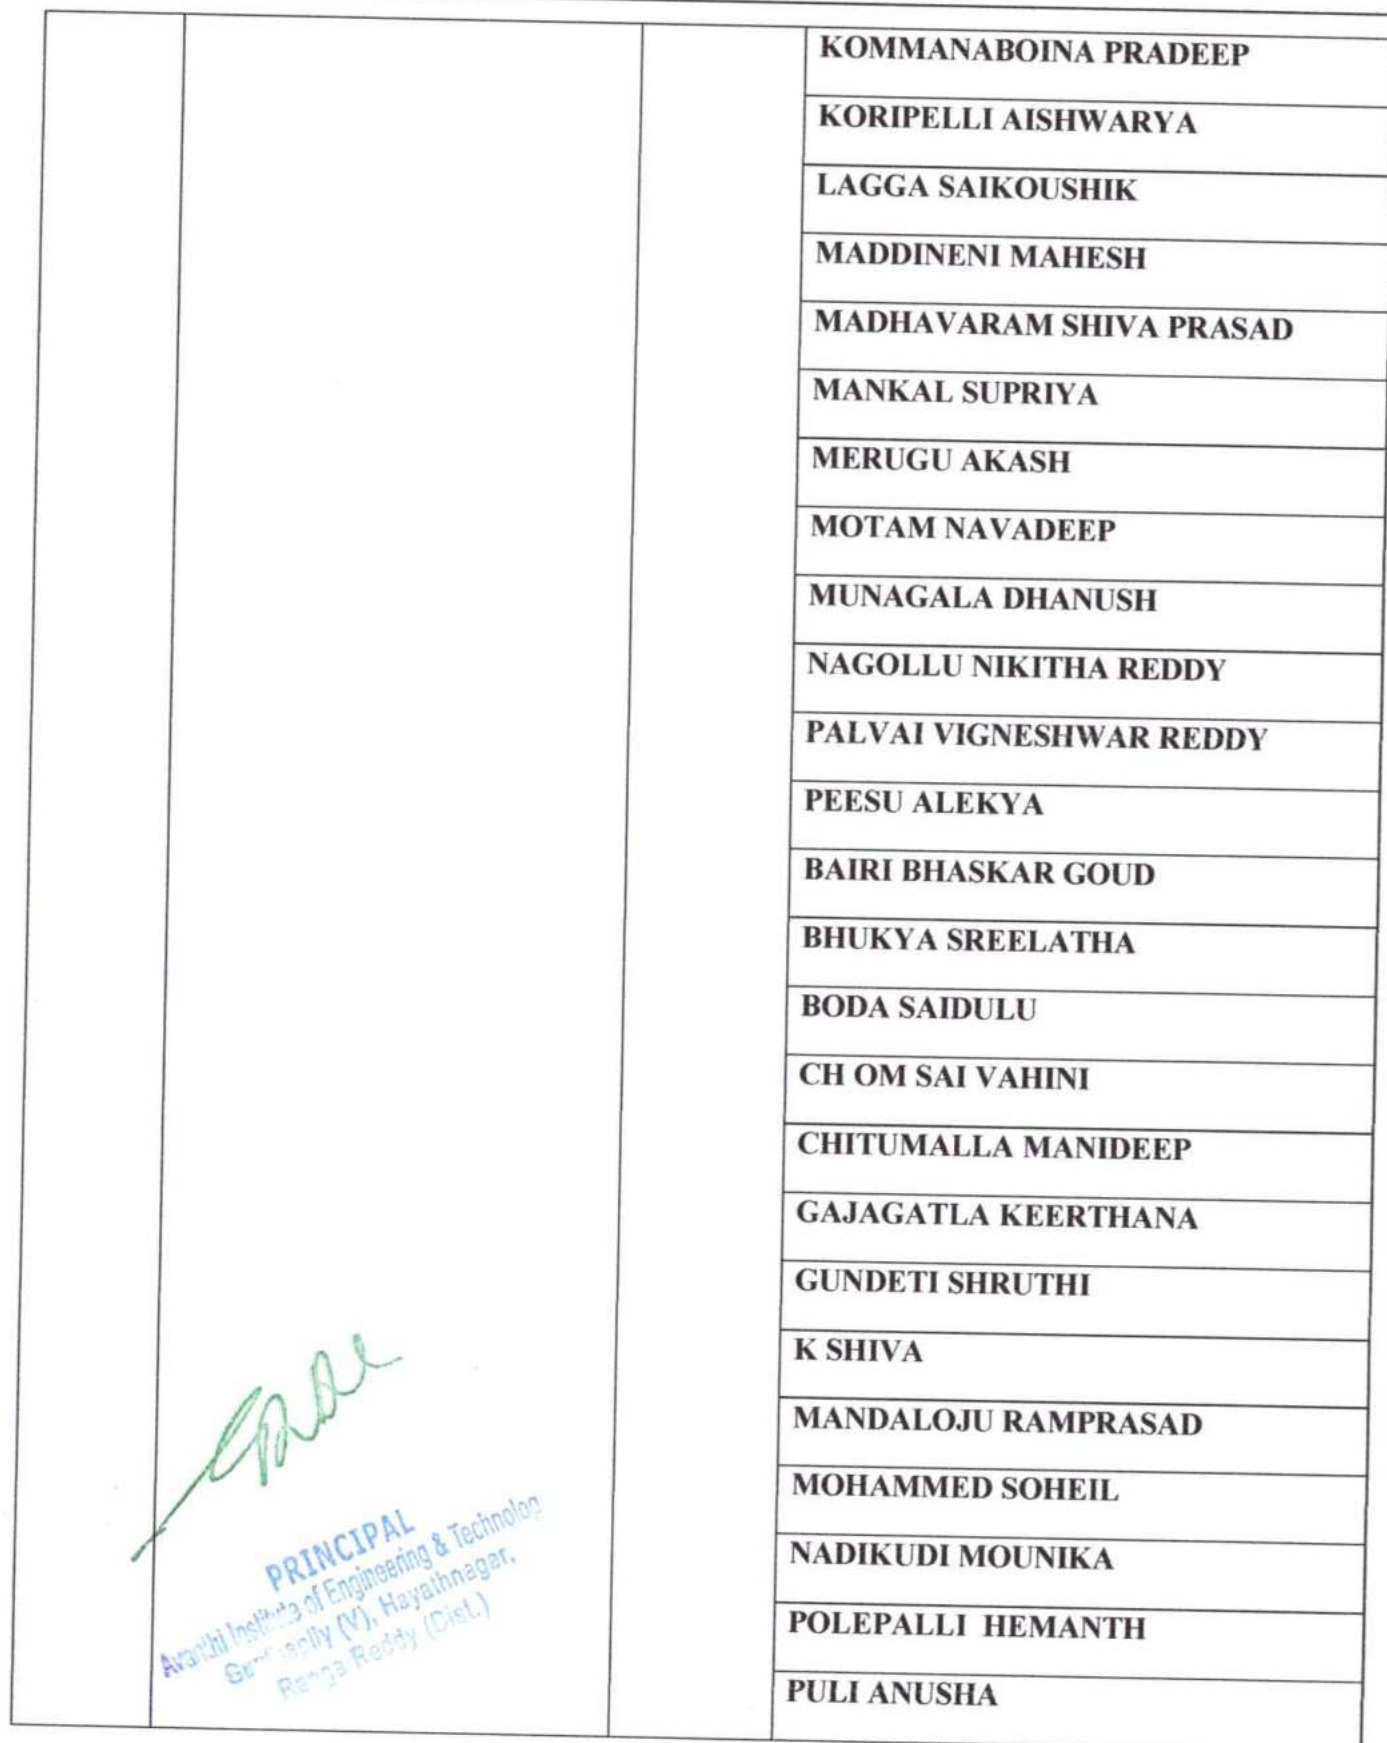 KOMMANABOINA PRADEEP
KORIPELLI AISHWARYA
LAGGA SAIKOUSHIK
MADDINENI MAHESH
MADHAVARAM SHIVA PRASAD
MANKAL SUPRIYA
MERUGU AKASH
MOTAM NAVADEEP
MUNAGALA DHANUSH
NAGOLLU NIKITHA REDDY
PALVAI VIGNESHWAR REDDY
PEESU ALEKYA
BAIRI BHASKAR GOUD
BHUKYA SREELATHA
BODA SAIDULU
CH OM SAI VAHINI
CHITUMALLA MANIDEEP
GAJAGATLA KEERTHANA
GUNDETI SHRUTHI
K SHIVA
MANDALOJU RAMPRASAD
MOHAMMED SOHEIL
NADIKUDI MOUNIKA
POLEPALLI HEMANTH
PULI ANUSHA
PRINCIPAL
Avanthi Institute of Engineering & Technolog
(V), Hayathnagar,
Ranga Reddy (Dist.)